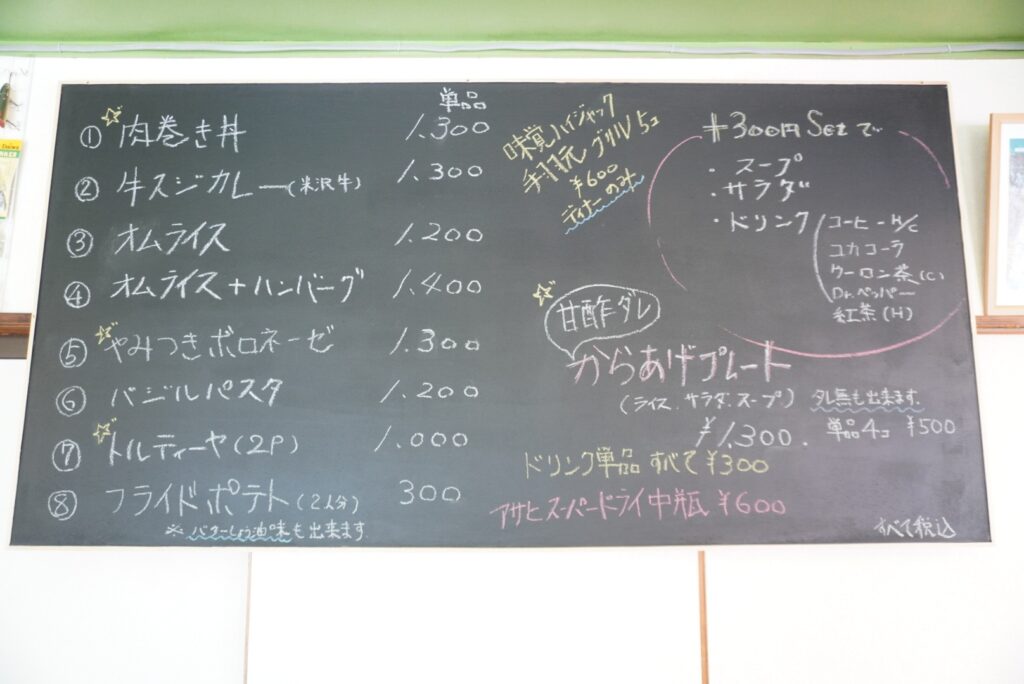 単品
① ☆肉巻き丼 1.300
② 牛スジカレー(米沢牛) 1.300
③ オムライス 1.200
④ オムライス+ハンバーグ 1.400
⑤ ☆やみつきボロネーゼ 1.300
⑥ バジルパスタ 1.200
⑦ ☆トルティーヤ(2P) 1.000
⑧ フライドポテト(2人分) 300
※ バターしょう油味も出来ます
味覚ハイジャック
手羽元グリル5コ
¥600
ディナーのみ
+300円Setで
・スープ
・サラダ
・ドリンク
コーヒーH/C
コカコーラ
ウーロン茶(C)
Dr.ペッパー
紅茶(H)
☆甘酢ダレ
からあげプレート
(ライス、サラダ、スープ)
タレ無も出来ます
¥1.300.
単品4コ ¥500
ドリンク単品すべて¥300
アサヒスーパードライ中瓶 ¥600
すべて税込
Daiwa